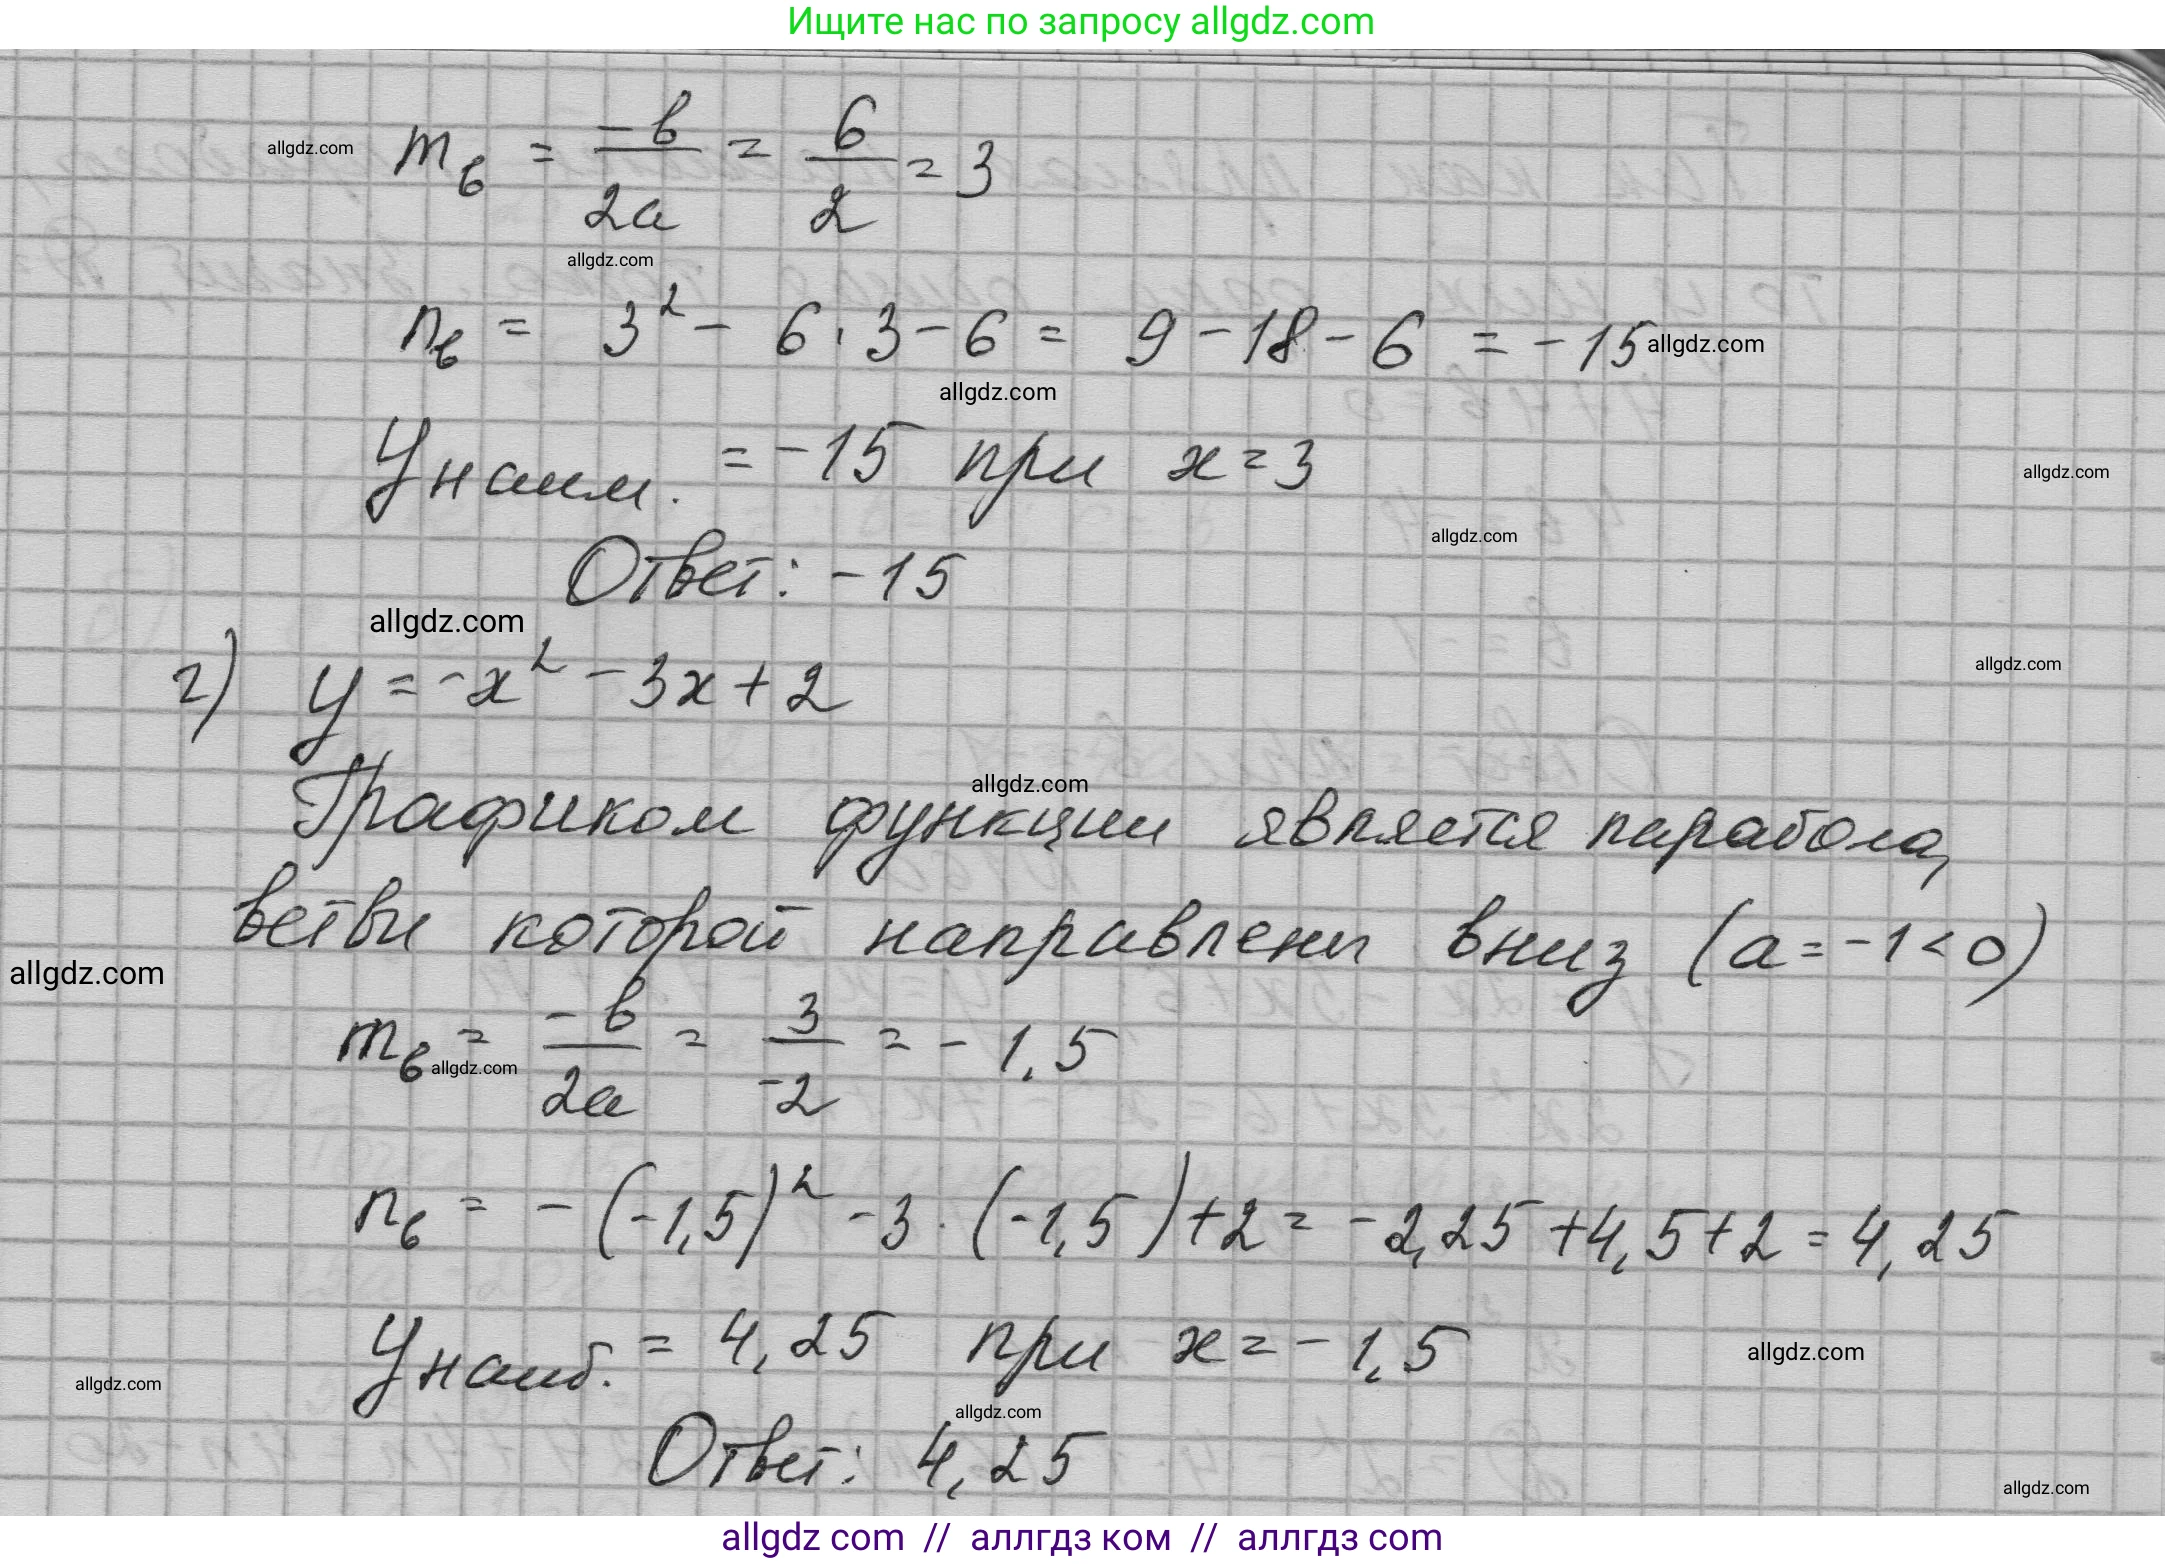 Ищите нас по запросу allgdz.com
allgdz.com
m_в = -в/2а = 6/2 = 3
allgdz.com
n_в = 3² - 6 · 3 - 6 = 9 - 18 - 6 = -15 allgdz.com
allgdz.com
У наим. = -15 при х = 3
allgdz.com
allgdz.com
Ответ: -15
allgdz.com
allgdz.com
г) у = -х² - 3х + 2
allgdz.com
Графиком функции является парабола,
ветви которой направлены вниз (а = -1 < 0)
allgdz.com
m_в = -в/2а = 3/-2 = -1,5
allgdz.com
n_в = -(-1,5)² - 3 · (-1,5) + 2 = -2,25 + 4,5 + 2 = 4,25
У наиб. = 4,25 при х = -1,5
allgdz.com
allgdz.com
allgdz.com
Ответ: 4,25
allgdz.com
allgdz com // аллгдз ком // аллгдз com